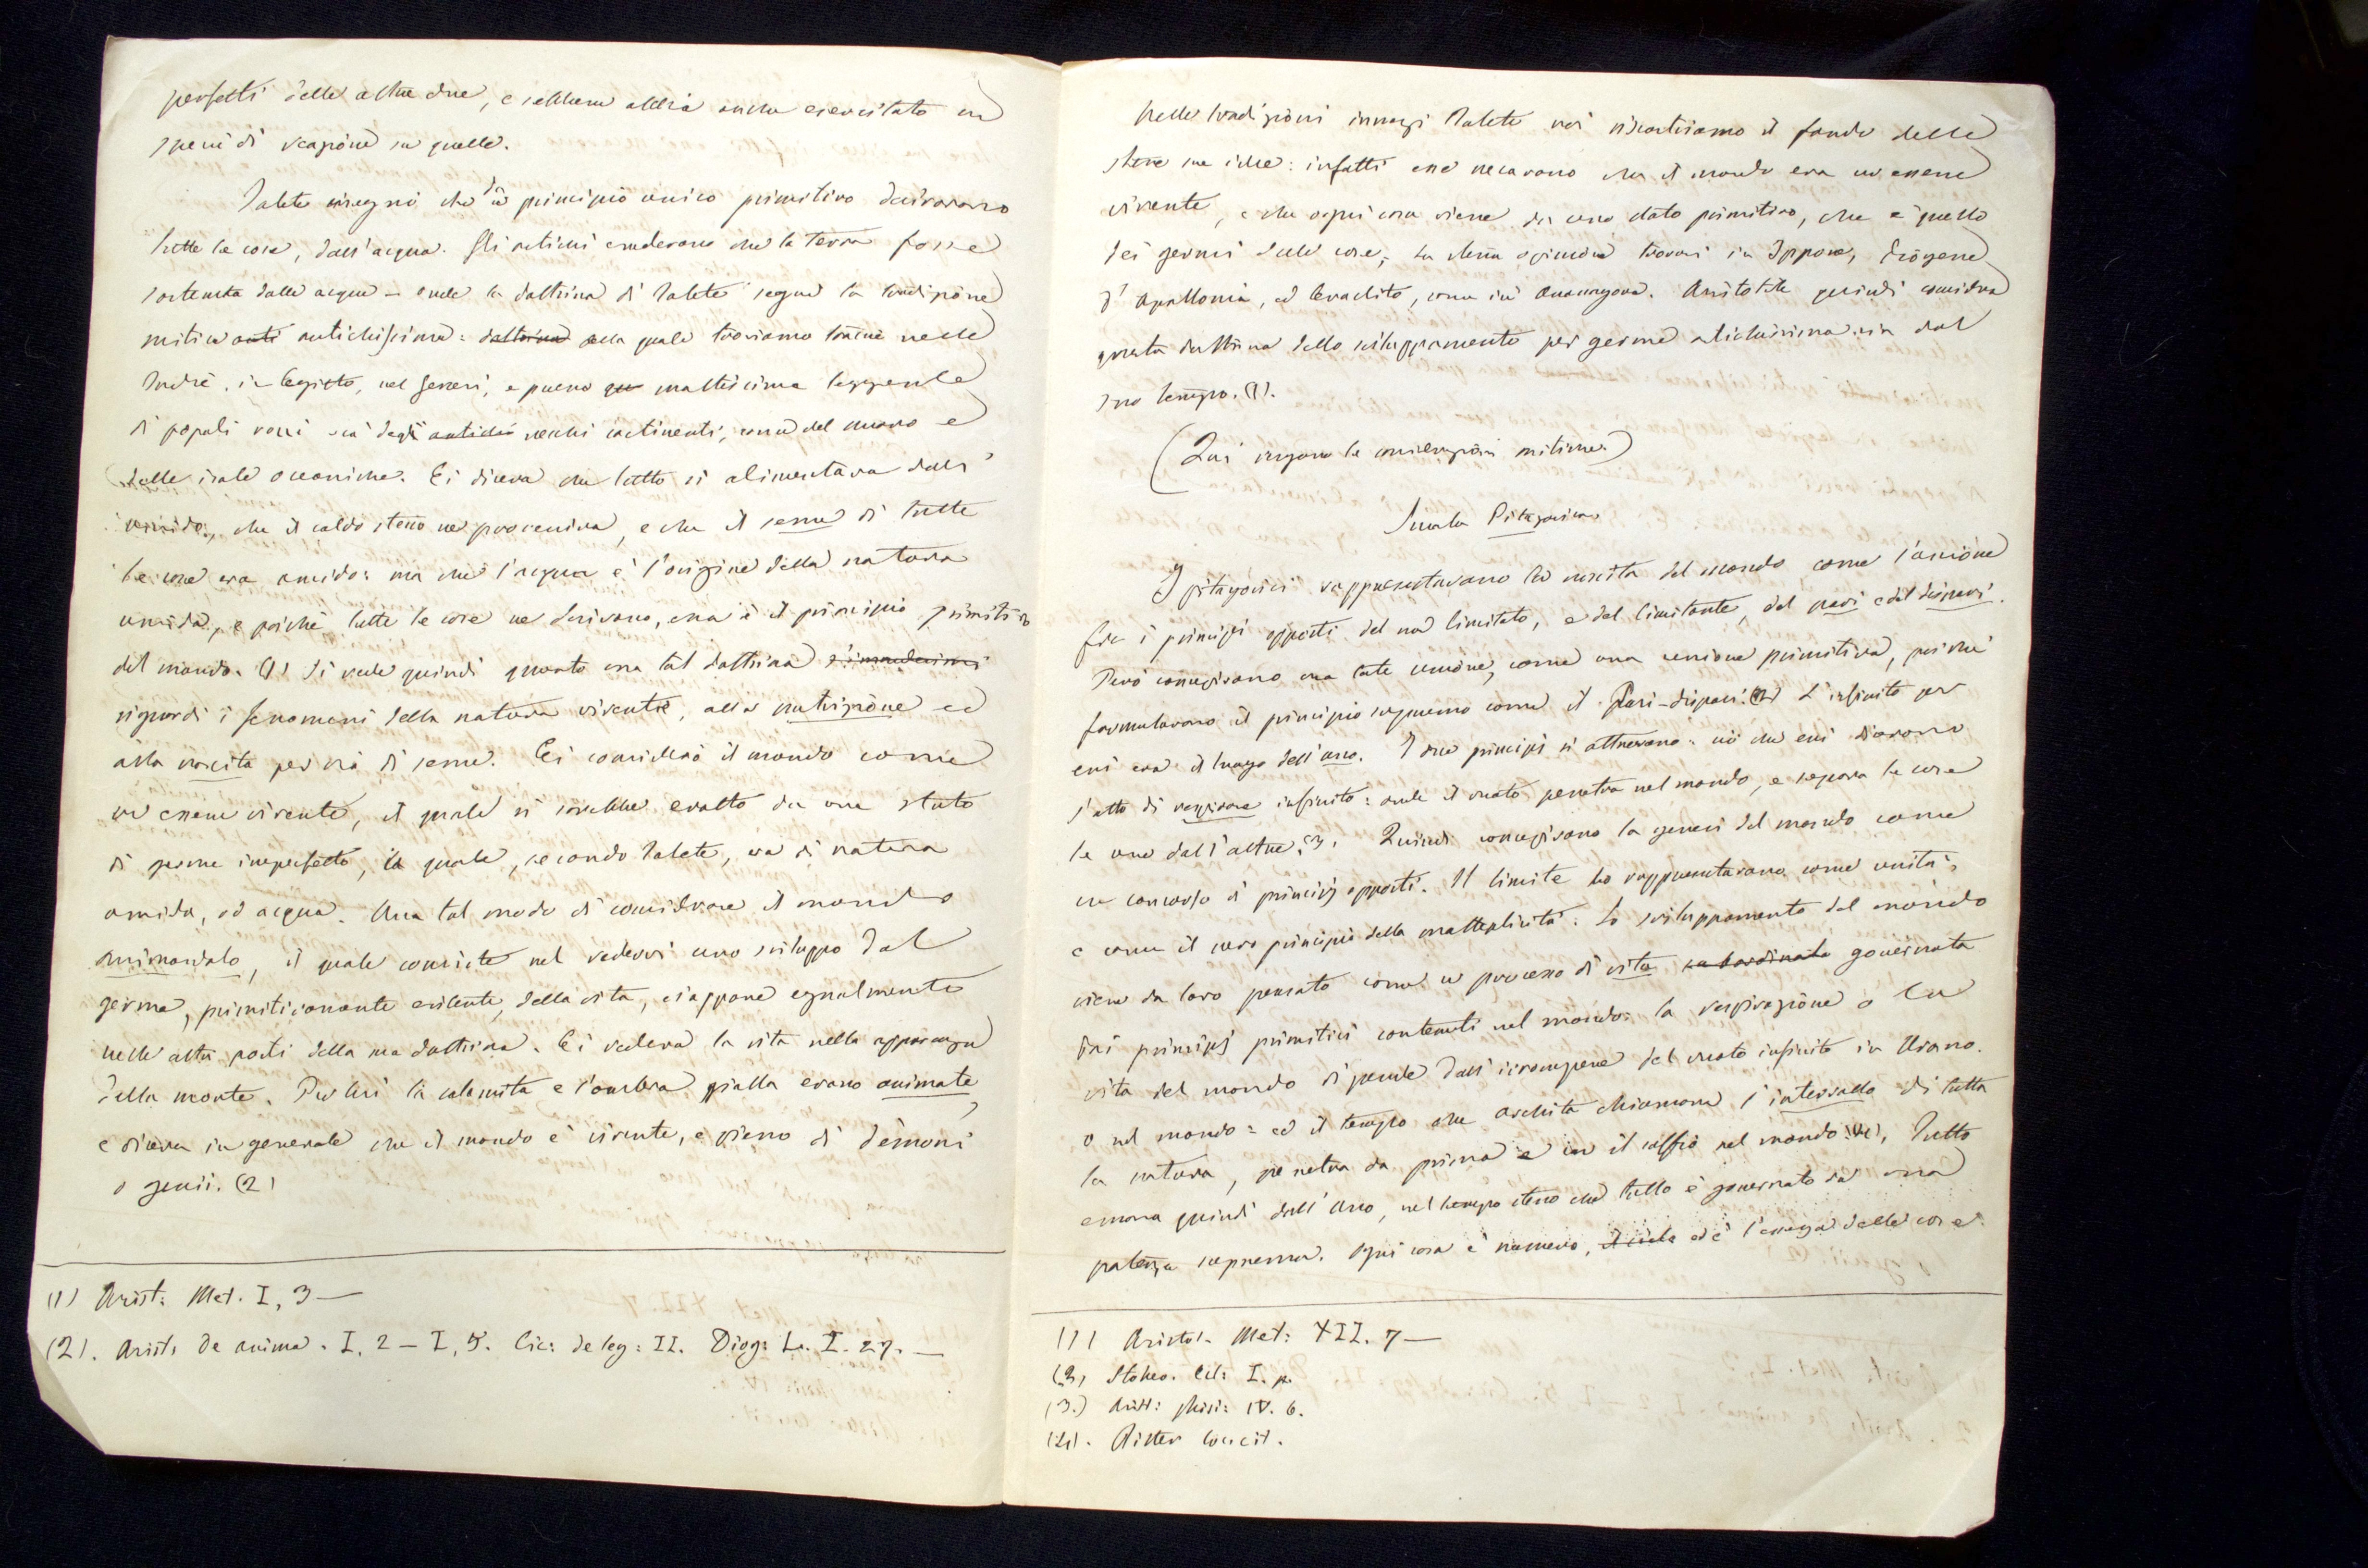 perfetti delle altre due, e sebbene abbia anche esercitato una
specie di reazione su quelle.
Talete insegnò che da un principio unico primitivo derivarono
tutte le cose, dall'acqua. Gli antichi credevano che la terra fosse
sostenuta dalle acque – onde la dottrina di Talete segue la tradizione
mitica anti antichissima: dottrina alla quale troviamo nelle
Indie, in Egitto, nel Genesi, e presso moltissime leggende
di popoli varii sia degli antichi vecchi continenti, come del nuovo e
delle isole oceaniche. Ei diceva che tutto si alimentava dall'
umido, che il caldo stesso ne proveniva, e che il seme di tutte
le cose era umido: ma che l'acqua è l'origine della natura
umida, e poichè tutte le cose ne derivano, essa è il principio primitivo
del mondo. (1) Si vede quindi quanto una tal dottrina
riguardi i fenomeni della natura vivente, alla nutrizione ed
alla nascita per via di seme. Ei considerò il mondo come
un essere vivente, il quale si sarebbe evolto da uno stato
di germe imperfetto, il quale, secondo Talete, era di natura
umida, od acqua. Una tal modo di considerare il mondo
animandolo, il quale consiste nel vedervi uno sviluppo dal
germe, primitivamente esistente, della vita, riappare egualmente
nelle altre parti della sua dottrina. Ei vedeva la vita nella apparenza
della morte. Per lui la calamita e l'ambra gialla erano animate,
e diceva in generale che il mondo è vivente, e pieno di demoni
o genii. (2)
(1) Arist: Met. I, 3 —
(2). Arist: De anima. I, 2 – I, 5. Cic: de leg: II. Diog: La. I. 27. —
Nelle tradizioni innanzi Talete noi riscontriamo il fondo delle
stesse sue idee: infatti esse recavano che il mondo era un essere
vivente, e che ogni cosa viene da uno stato primitivo, che è quello
dei germi delle cose; la stessa opinione trovasi in Ippone, Diogene
d'Apollonia, ed Eraclito, come in Anassagora. Aristotele quindi considera
questa dottrina dello sviluppamento per germe antichissima sin dal
suo tempo. (1).
(Qui vengono le considerazioni mitiche.)
Scuola Pitagorica
I pitagorici rappresentavano la nascita del mondo come l'unione
fra i principi opposti del non limitato, e del limitante, del pari e del dispari.
Però concepivano una tale unione, come una unione primitiva, poichè
formularono il principio supremo come il Pari-dispari. (2) L'infinito per
essi era il luogo dell'uno. I due principi si attraevano: ciò che essi dicevano
l'atto di respirare infinito: onde il vuoto penetra nel mondo, e separa le cose
le une dall'altre. (3). Quindi concepivano la genesi del mondo come
un concorso di principj opposti. Il limite lo rappresentavano come unità;
e come il vero principio della molteplicità. Lo sviluppamento del mondo
viene da loro pensato come un processo di vita subordinata governata
dai principj primitivi contenuti nel mondo: la respirazione o la
vita del mondo dipende dall'irrompere del vuoto infinito in Urano.
o nel mondo: ed il tempo che Archita chiamava l'intervallo di tutta
la natura, penetra da prima con il soffio nel mondo (4). Tutto
emana quindi dall'Uno, nel tempo stesso che tutto è governato da una
potenza suprema. Ogni cosa è numero, il cielo ed è l'essenza delle cose.
(1) Aristot. Met: XII. 7 —
(2) Stobeo. Ecl: I. p.
(3.) Arist: phisi: IV. 6.
(4). Ritter loc. cit.